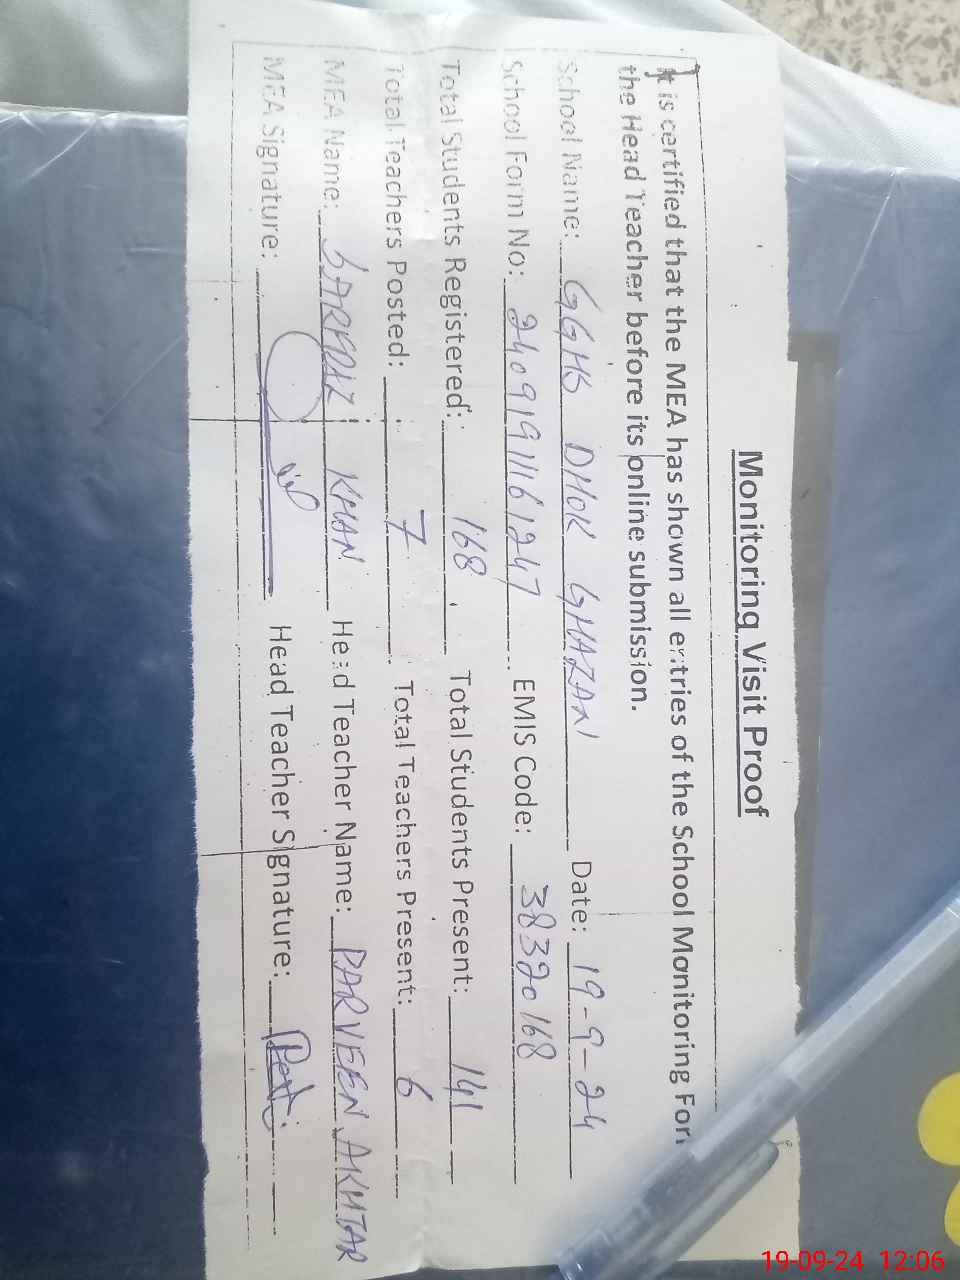 Monitoring Visit Proof
It is certified that the MEA has shown all entries of the School Monitoring For
the Head Teacher before its online submission.
School Name: GGHS DHOK GHAZAN Date: 19-9-24
School Form No: 24091911161247 EMIS Code: 38320168
Total Students Registered: 168 Total Students Present: 141
Total Teachers Posted: 7 Total Teachers Present: 6
MEA Name: SARFRAZ KHAN Head Teacher Name: PARVEEN AKHTAR
MEA Signature: Head Teacher Signature:
19-09-24 12:06